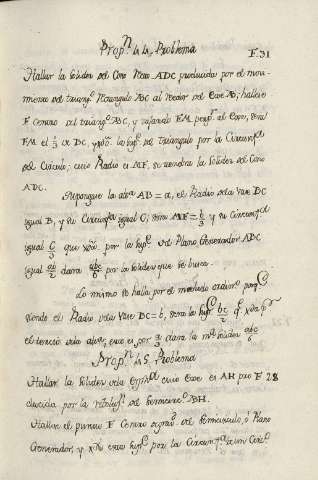 Propⁿ. la 4ª. Problema
F. 31
Hallar la solidez del Cono Recto ADC producida por el movi-
miento del triangº. Rectangulo ABC al rededor del Exe AB; hallese
F Centro del triangº. ABC, y tirando FM perpᵃ. al Exe, sera
FM el ⅓ de BC, y xpᵈᵃ. la supᵉ. del triangulo por la Circunfᵃ.
del Circulo, cuio Radio es MF, se tendra la solidez del Cono
ADC.
Supongase la altᵃ. AB = a, el Radio dela vase BC
igual B, y su Circunfᵃ. igual C; sera MF = b/3 y su Circunfᵃ.
igual C/3 que xpᵈᵃ. por la supᵉ. del Plano Generador ABC
igual ab/2 dara abc/6 por la solidez que se busca.
Lo mismo se halla por el methodo ordinº. porqᵉ.
siendo el Radio dela vase BC = b, sera la supᵉ. bc/2 qᵉ. xpᵈᵃ. pʳ.
el tercio dela altᵃ., esto es por a/3 dara la mᵃ. solidez abc/6
Propⁿ. la 5. Problema
Hallar la solidez dela Esphᵃ. cuio Exe es AH
F 28
ducida por la reboluⁿ. del semicircº. BH.
Hallese el punto F Centro gravᵈ. del semicirculo, ó Plano
Generador, y xpᵈᵃ. esta supᵉ. por la Circunfᵃ.